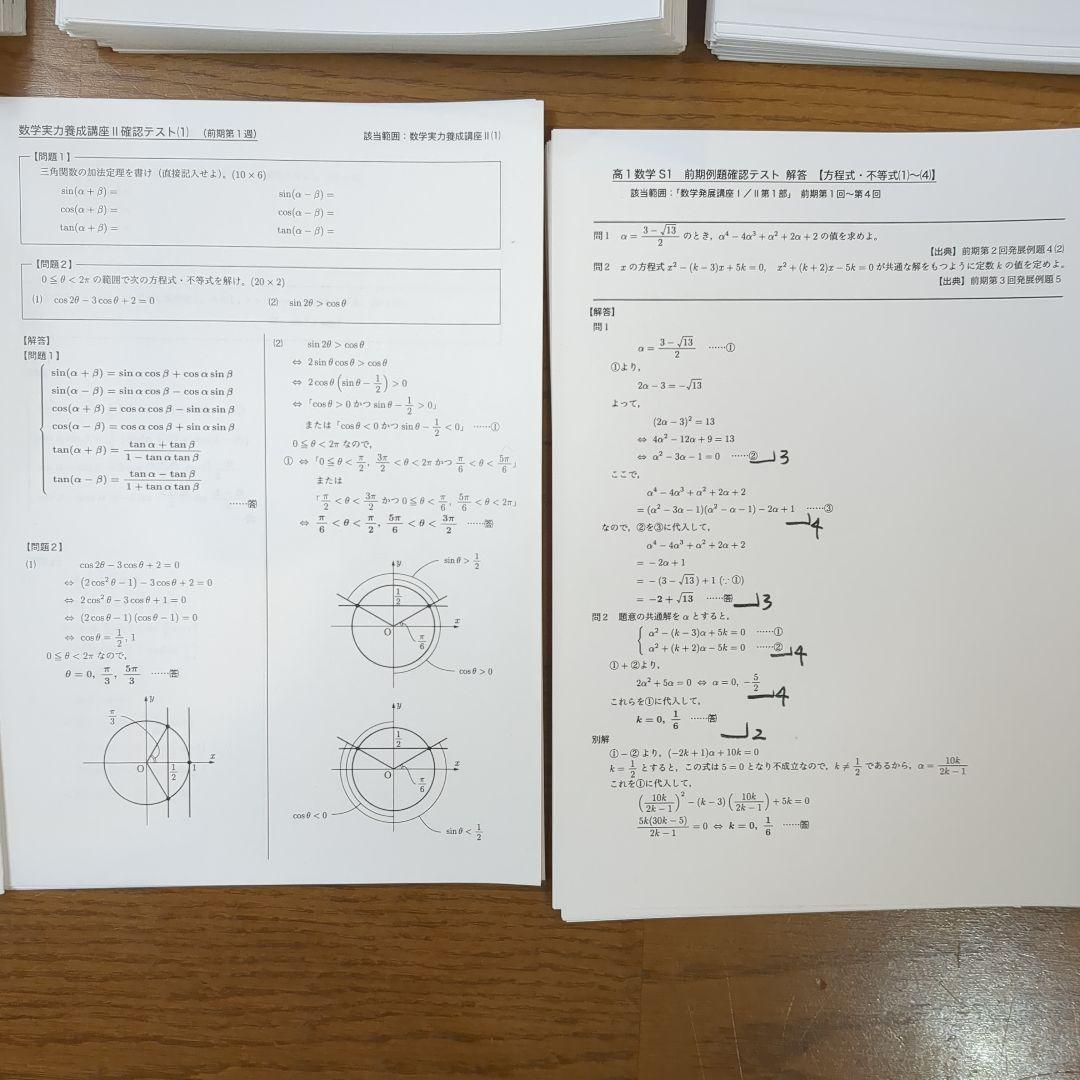 数学実力養成講座Ⅱ確認テスト(1) (前期第1週) 該当範囲:数学実力養成講座Ⅱ(1)
【問題1】
三角関数の加法定理を書け(直接記入せよ)。(10×6)
sin(α+β)= sin(α−β)=
cos(α+β)= cos(α−β)=
tan(α+β)= tan(α−β)=
【問題2】
0≦θ<2π の範囲で次の方程式・不等式を解け。(20×2)
(1) cos2θ−3cosθ+2=0 (2) sin2θ>cosθ
【解答】
【問題1】
sin(α+β)=sinαcosβ+cosαsinβ
sin(α−β)=sinαcosβ−cosαsinβ
cos(α+β)=cosαcosβ−sinαsinβ
cos(α−β)=cosαcosβ+sinαsinβ
tan(α+β)=(tanα+tanβ)/(1−tanαtanβ)
tan(α−β)=(tanα−tanβ)/(1+tanαtanβ)
……答
【問題2】
(1) cos2θ−3cosθ+2=0
⇔ (2cos²θ−1)−3cosθ+2=0
⇔ 2cos²θ−3cosθ+1=0
⇔ (2cosθ−1)(cosθ−1)=0
⇔ cosθ=1/2, 1
0≦θ<2π なので,
θ=0, π/3, 5π/3 ……答
y
π/3
O 1/2 1 x
(2) sin2θ>cosθ
⇔ 2sinθcosθ>cosθ
⇔ 2cosθ(sinθ−1/2)>0
⇔ 「cosθ>0 かつ sinθ−1/2>0」
または「cosθ<0 かつ sinθ−1/2<0」 ……①
0≦θ<2π なので,
① ⇔ 「0≦θ<π/2, 3π/2<θ<2π かつ π/6<θ<5π/6」
または
「π/2<θ<3π/2 かつ 0≦θ<π/6, 5π/6<θ<2π」
⇔ π/6<θ<π/2, 5π/6<θ<3π/2 ……答
y sinθ>1/2
1/2
O x
π/6
cosθ>0
y
1/2
O x
π/6
cosθ<0
sinθ<1/2
高1数学S1 前期例題確認テスト 解答 【方程式・不等式(1)〜(4)】
該当範囲:「数学発展講座Ⅰ/Ⅱ第1部」 前期第1回〜第4回
問1 α=(3−√13)/2 のとき,α⁴−4α³+α²+2α+2 の値を求めよ。
【出典】前期第2回発展例題4(2)
問2 x の方程式 x²−(k−3)x+5k=0, x²+(k+2)x−5k=0 が共通な解をもつように定数 k の値を定めよ。
【出典】前期第3回発展例題5
【解答】
問1
α=(3−√13)/2 ……①
①より,
2α−3=−√13
よって,
(2α−3)²=13
⇔ 4α²−12α+9=13
⇔ α²−3α−1=0 ……② 3
ここで,
α⁴−4α³+α²+2α+2
=(α²−3α−1)(α²−α−1)−2α+1 ……③
なので,②を③に代入して, 4
α⁴−4α³+α²+2α+2
=−2α+1
=−(3−√13)+1 (∵①)
=−2+√13 ……答 3
問2 題意の共通解を α とすると,
α²−(k−3)α+5k=0 ……①
α²+(k+2)α−5k=0 ……② 4
①+②より,
2α²+5α=0 ⇔ α=0, −5/2
これらを①に代入して, 4
k=0, 1/6 ……答
2
別解
①−②より,(−2k+1)α+10k=0
k=1/2 とすると,この式は 5=0 となり不成立なので,k≠1/2 であるから,α=10k/(2k−1)
これを①に代入して,
(10k/(2k−1))²−(k−3)(10k/(2k−1))+5k=0
5k(30k−5)/(2k−1)=0 ⇔ k=0, 1/6 ……答